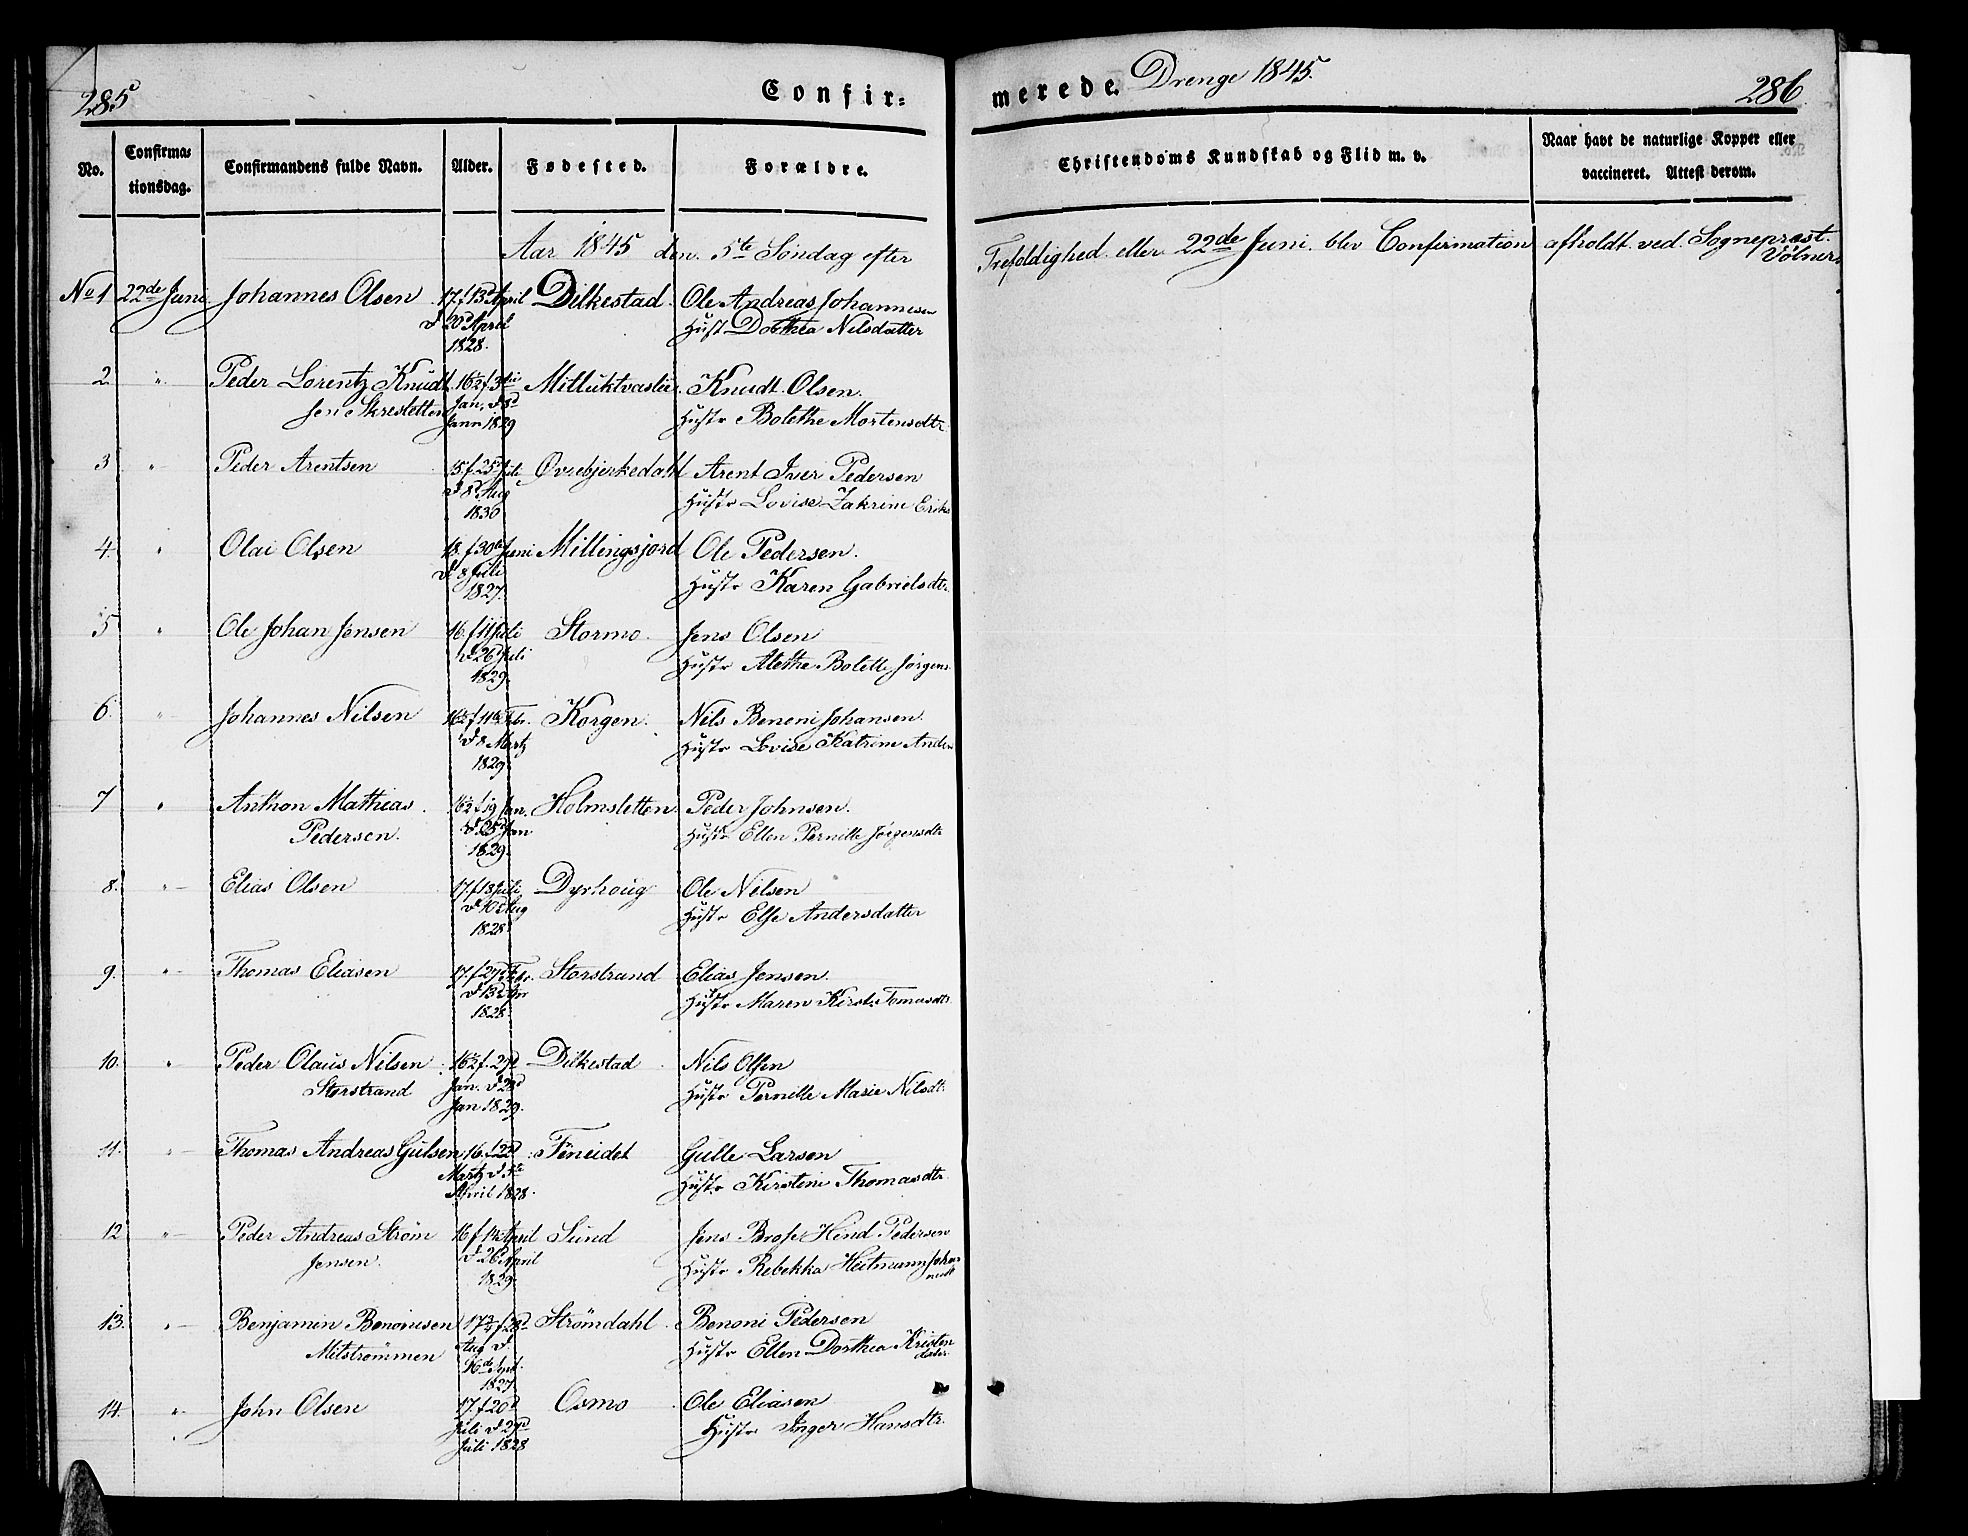 285
Confir=
merede. Drenge 1845.
286
No.
Confirma=
tionsdag.
Confirmandens fulde Navn.
Alder.
Fødested.
Forældre.
Christendoms Kundskab og Flid m. v.
Naar havt de naturlige Kopper eller
vaccineret. Attest derom.
Aar 1845 den 5te Søndag efter Trefoldighed eller 22de Juni blev Confirmation afholdt ved Sogneprest
Vølner
No 1 22de Juni Johannes Olsen 17. f 13d April Dilkestad Ole Andreas Johannesen
d 20d April Hust Dorthea Nilsdatter
1828.
2. " Peder Lorentz Knudt 16½ f 3die Milluktvaslie Knudt Olsen.
sen Skresletten Jan, d 8d Hustr Bolethe Mortensdtr
Janr 1829
3 " Peder Arentsen 15 f 25d Juli Øvrebjerkedahl Arent Iver Pedersen
d 8d Aug Hustr Lovise Zakrine Eriks
1830
4. " Olai Olsen 18. f 30te Juni Millingsjord Ole Pedersen.
d 8 Juli Hustr Karen Gabrielsdtr.
1827.
5 " Ole Johan Jensen 16 f 11 Juli Stormo. Jens Olsen
d 26 Juli Hustr Alethe Bolette Jørgens
1829.
6. " Johannes Nilsen 16½ f 11te Febr. Korgen. Nils Benoni Johansen.
d 8 Martz Hustr Lovise Katrine Anders
1829.
7 " Anthon Mathias 16½ f 19 Jan. Holmsletten Peder Johnsen.
Pedersen. d. 25d Jan Hustr Ellen Pernille Jørgensdtr
1829.
8. " Elias Olsen 17. f 18 Juli Dyrhoug Ole Nilsen
d 10d Aug Hustr Else Andersdatter
1828
9. " Thomas Eliasen 17. f 27d Febr. Storstrand Elias Jensen.
d 13d Apr Hustr Maren Kirst. Tomasdtr
1828.
10. " Peder Olaus Nilsen 16½ f. 29d Dilkestad Nils Olsen
Storstrand Jan. d 28d Hustr Pernille Marie Nilsdtr
Jan 1829.
11. " Thomas Andreas Gulsen 16. f 22d Føneidet Gulle Larsen
Martz d. 5te Hustr Kirstine Thomasdtr
April 1828.
12 " Peder Andreas Strøm 16 f 14 April Sund Jens Brose Hind Pedersen
Jensen. d 26 April Hustr Rebekka Heitmann Johan
1829. nesdt
13. " Benjamin Benonisen 17¾ f 28d Strømdahl Benoni Pedersen
Mitstrømmen Aug d. Hustr Ellen Dorthea Kristen
16de Spt. datter
1827
14. " John Olsen 17. f 20d Osmo Ole Eliasen
" Juli d 27d Hustr Inger Hansdtr.
Juli 1828